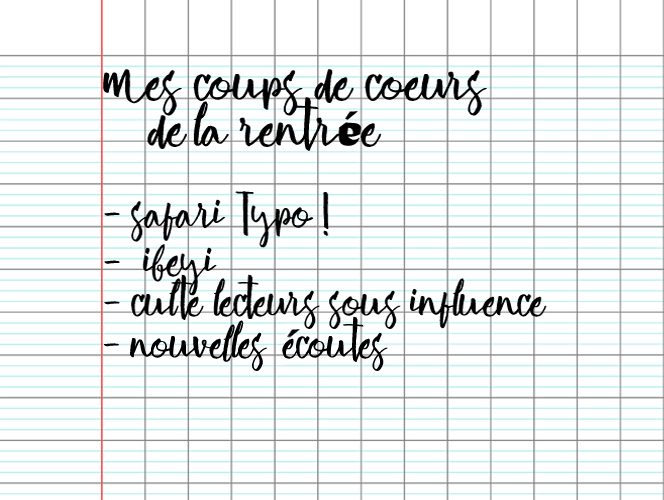 Mes coups de coeurs
de la rentrée
- safari Typo !
- ibeyi
- culte lecteurs sous influence
- nouvelles écoutes